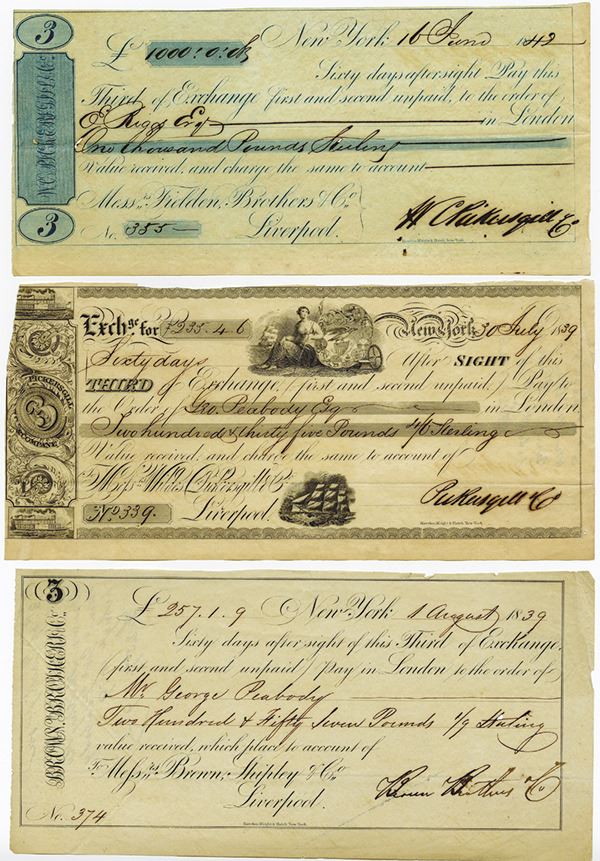 3
W.C. PICKERSGILL & Co.
3
£ 1000 : 0 : 0 New York 16 June 1842
Sixty days after sight Pay this
Third of Exchange first and second unpaid, to the order of
E Riggs Esqr in London
One thousand Pounds Sterling
Value received, and charge the same to account
Messrs. Fielden, Brothers & Co.
No. 355 Liverpool.
W C Pickersgill & Co
Rawdon, Wright & Hatch, New York
PICKERSGILL
3
& COMPANY
Exchge. for £235.4.6 New York 30 July 1839
Sixty days After SIGHT of this
THIRD of Exchange, (first and second unpaid,) Pay to
the Order of Geo. Peabody Esq in London,
Two hundred & thirty five Pounds 4/6 Sterling
Value received, and charge the same to account of
To Messrs. Wm. & C. Pickersgill & Co.
No 339. Liverpool.
Pickersgill & Co
Rawdon, Wright & Hatch, New York
3
BROWN, BROTHERS & Co.
£ 257.1.9 New York 1 August 1839
Sixty days after sight of this Third of Exchange,
(first and second unpaid) Pay in London to the order of
Mr. George Peabody
Two Hundred & Fifty Seven Pounds 1/9 Sterling
value received, which place to account of
To Messrs. Brown, Shipley & Co.
Liverpool.
Brown Brothers & Co
No. 374
Rawdon, Wright & Hatch, New York